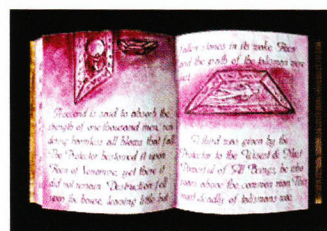 Thousand is said to absorb the
strength of one thousand men, ren
dering harmless all blows that fall
The Protector bestowed it upon
did not remain. Destruction fell
upon the house, leaving little but
fallen stones in its wake.
and the path of the talisman
Third was given by the
Protector to the Wisest & Most
Powerful of All Beings, he who
above the common man. This
most deadly of talismans was